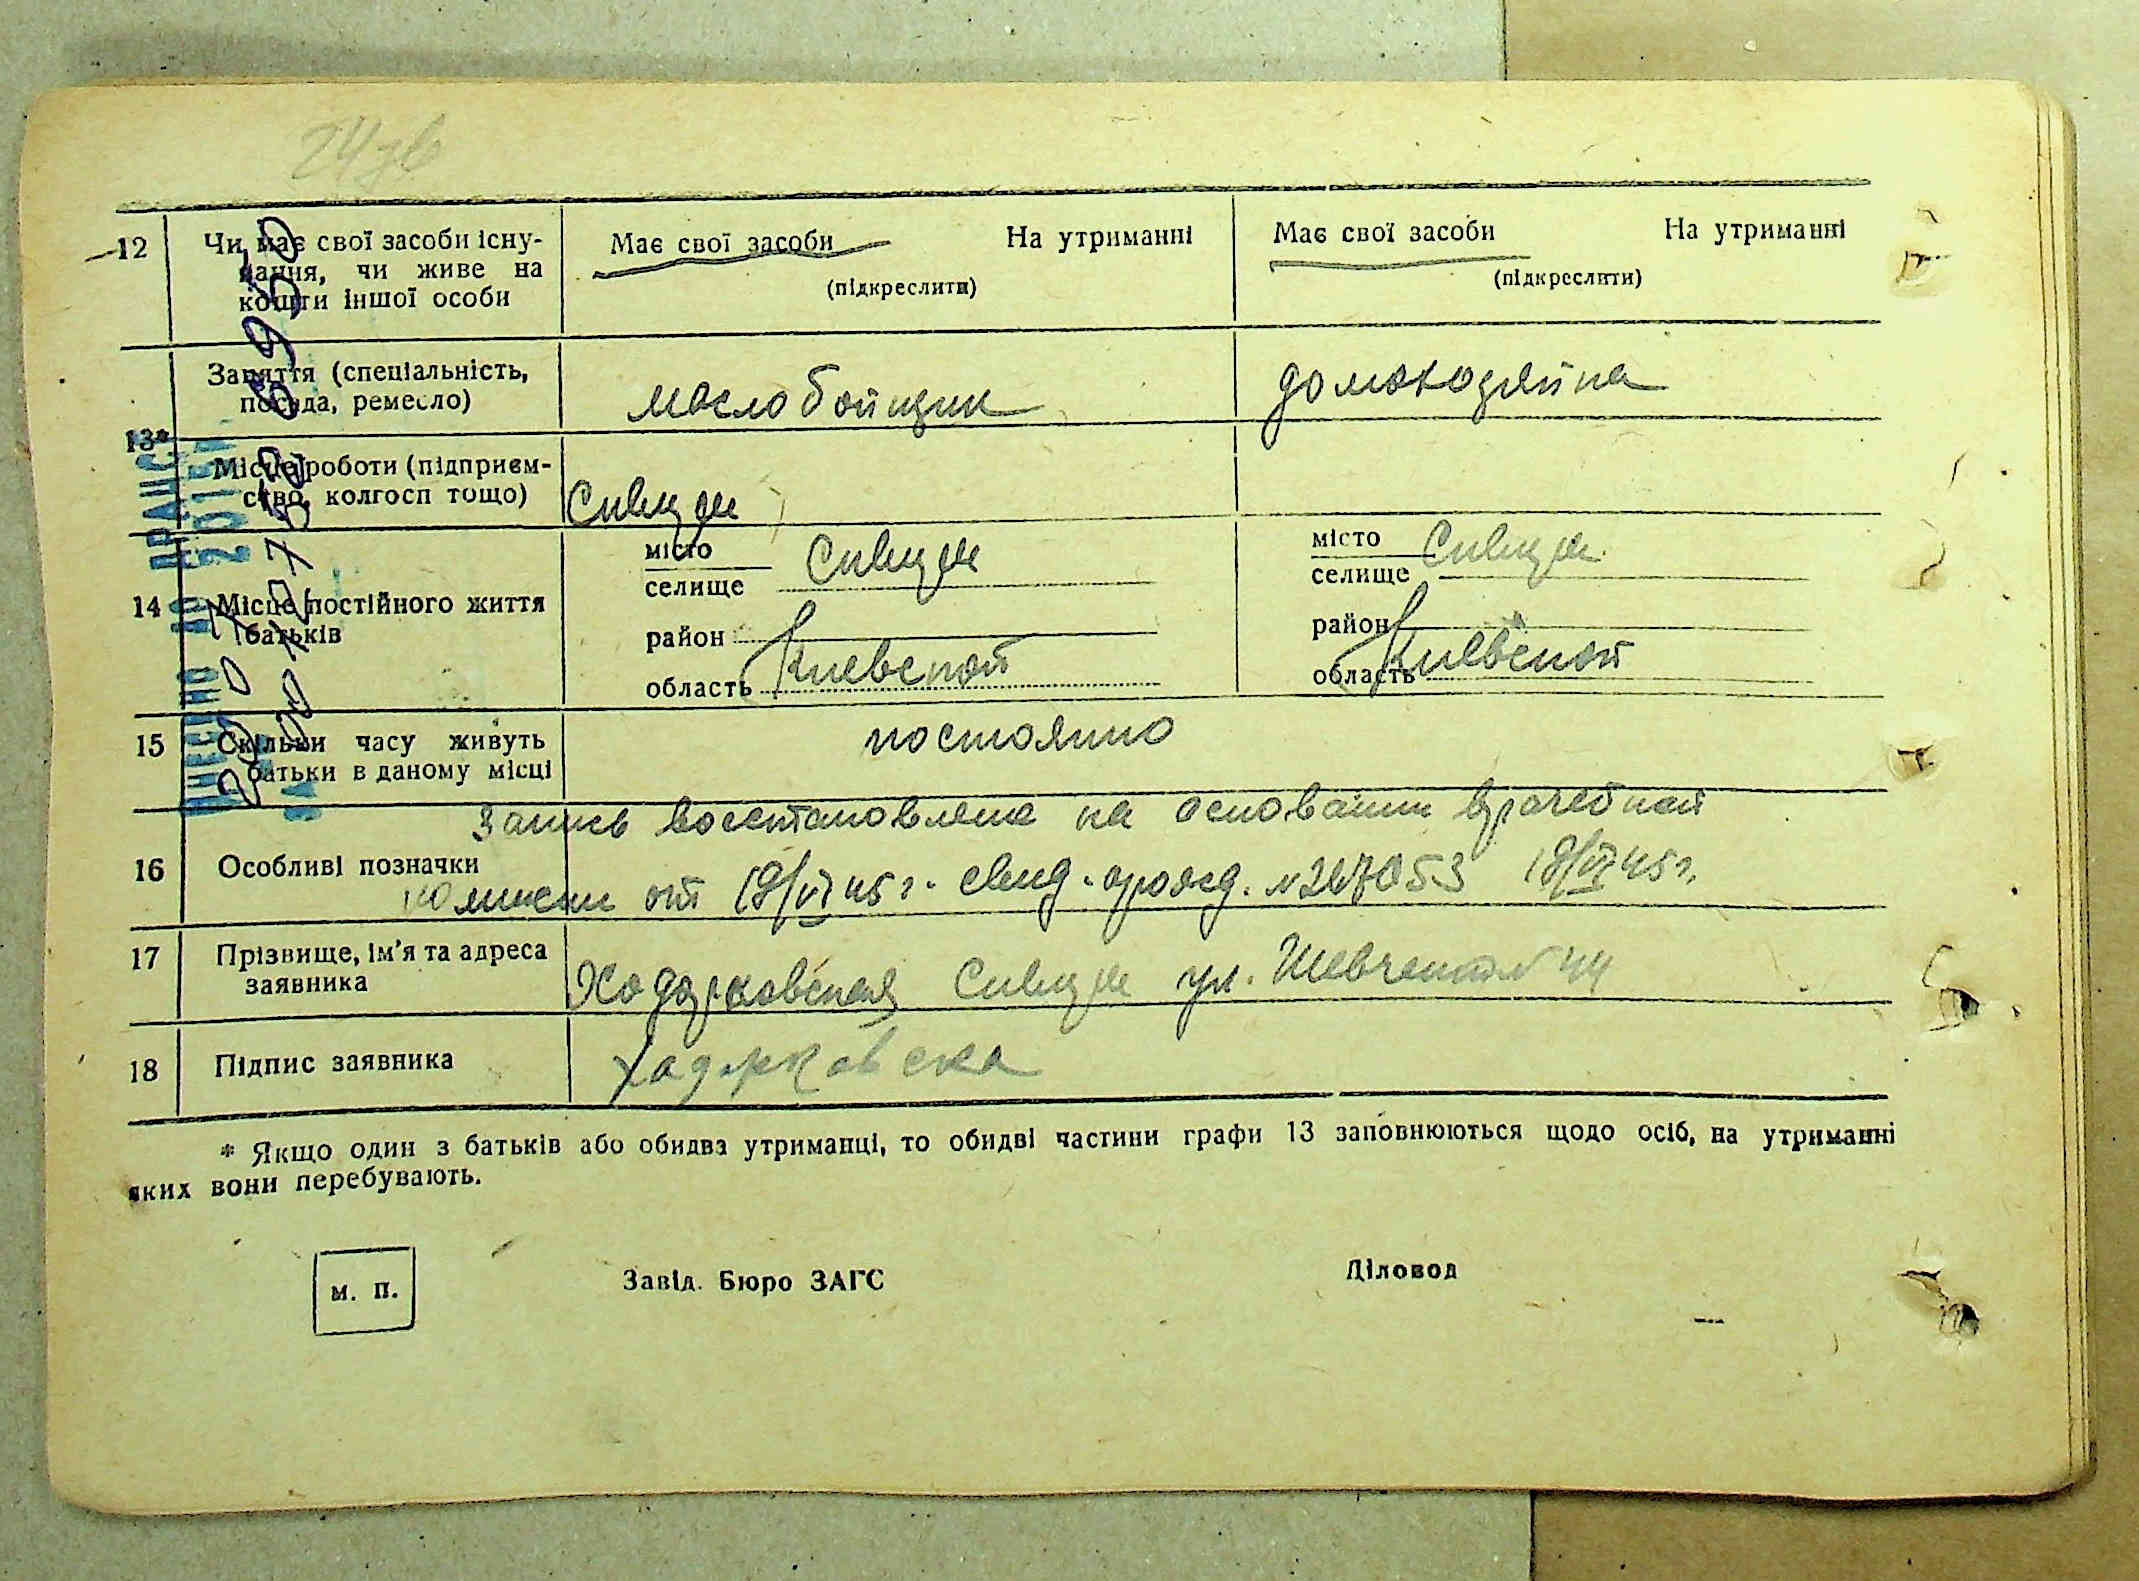 24зв
12 Чи має свої засоби існу-
вання, чи живе на
кошти іншої особи
Має свої засоби На утриманні
(підкреслити)
Має свої засоби На утриманні
(підкреслити)
13*
Заняття (спеціальність,
посада, ремесло)
маслобойщик
домохозяйка
Місце роботи (підприєм-
ство, колгосп тощо)
Сквира
14 Місце постійного життя
батьків
місто
селище
Сквира
район
область Киевской
місто
селище
Сквира
район
область Киевской
15 Скільки часу живуть
батьки в даному місці
постоянно
16 Особливі позначки
Запись восстановлена на основании врачебной
комиссии от 18/VI 45 г. свид. рожд. № 267053 18/VI 45 г.
17 Прізвище, ім'я та адреса
заявника
Ходорковская Сквира ул. Шевченко № 44
18 Підпис заявника
Ходорковска
* Якщо один з батьків або обидва утриманці, то обидві частини графи 13 заповнюються щодо осіб, на утриманні
яких вони перебувають.
м. п.
Завід. Бюро ЗАГС
Діловод